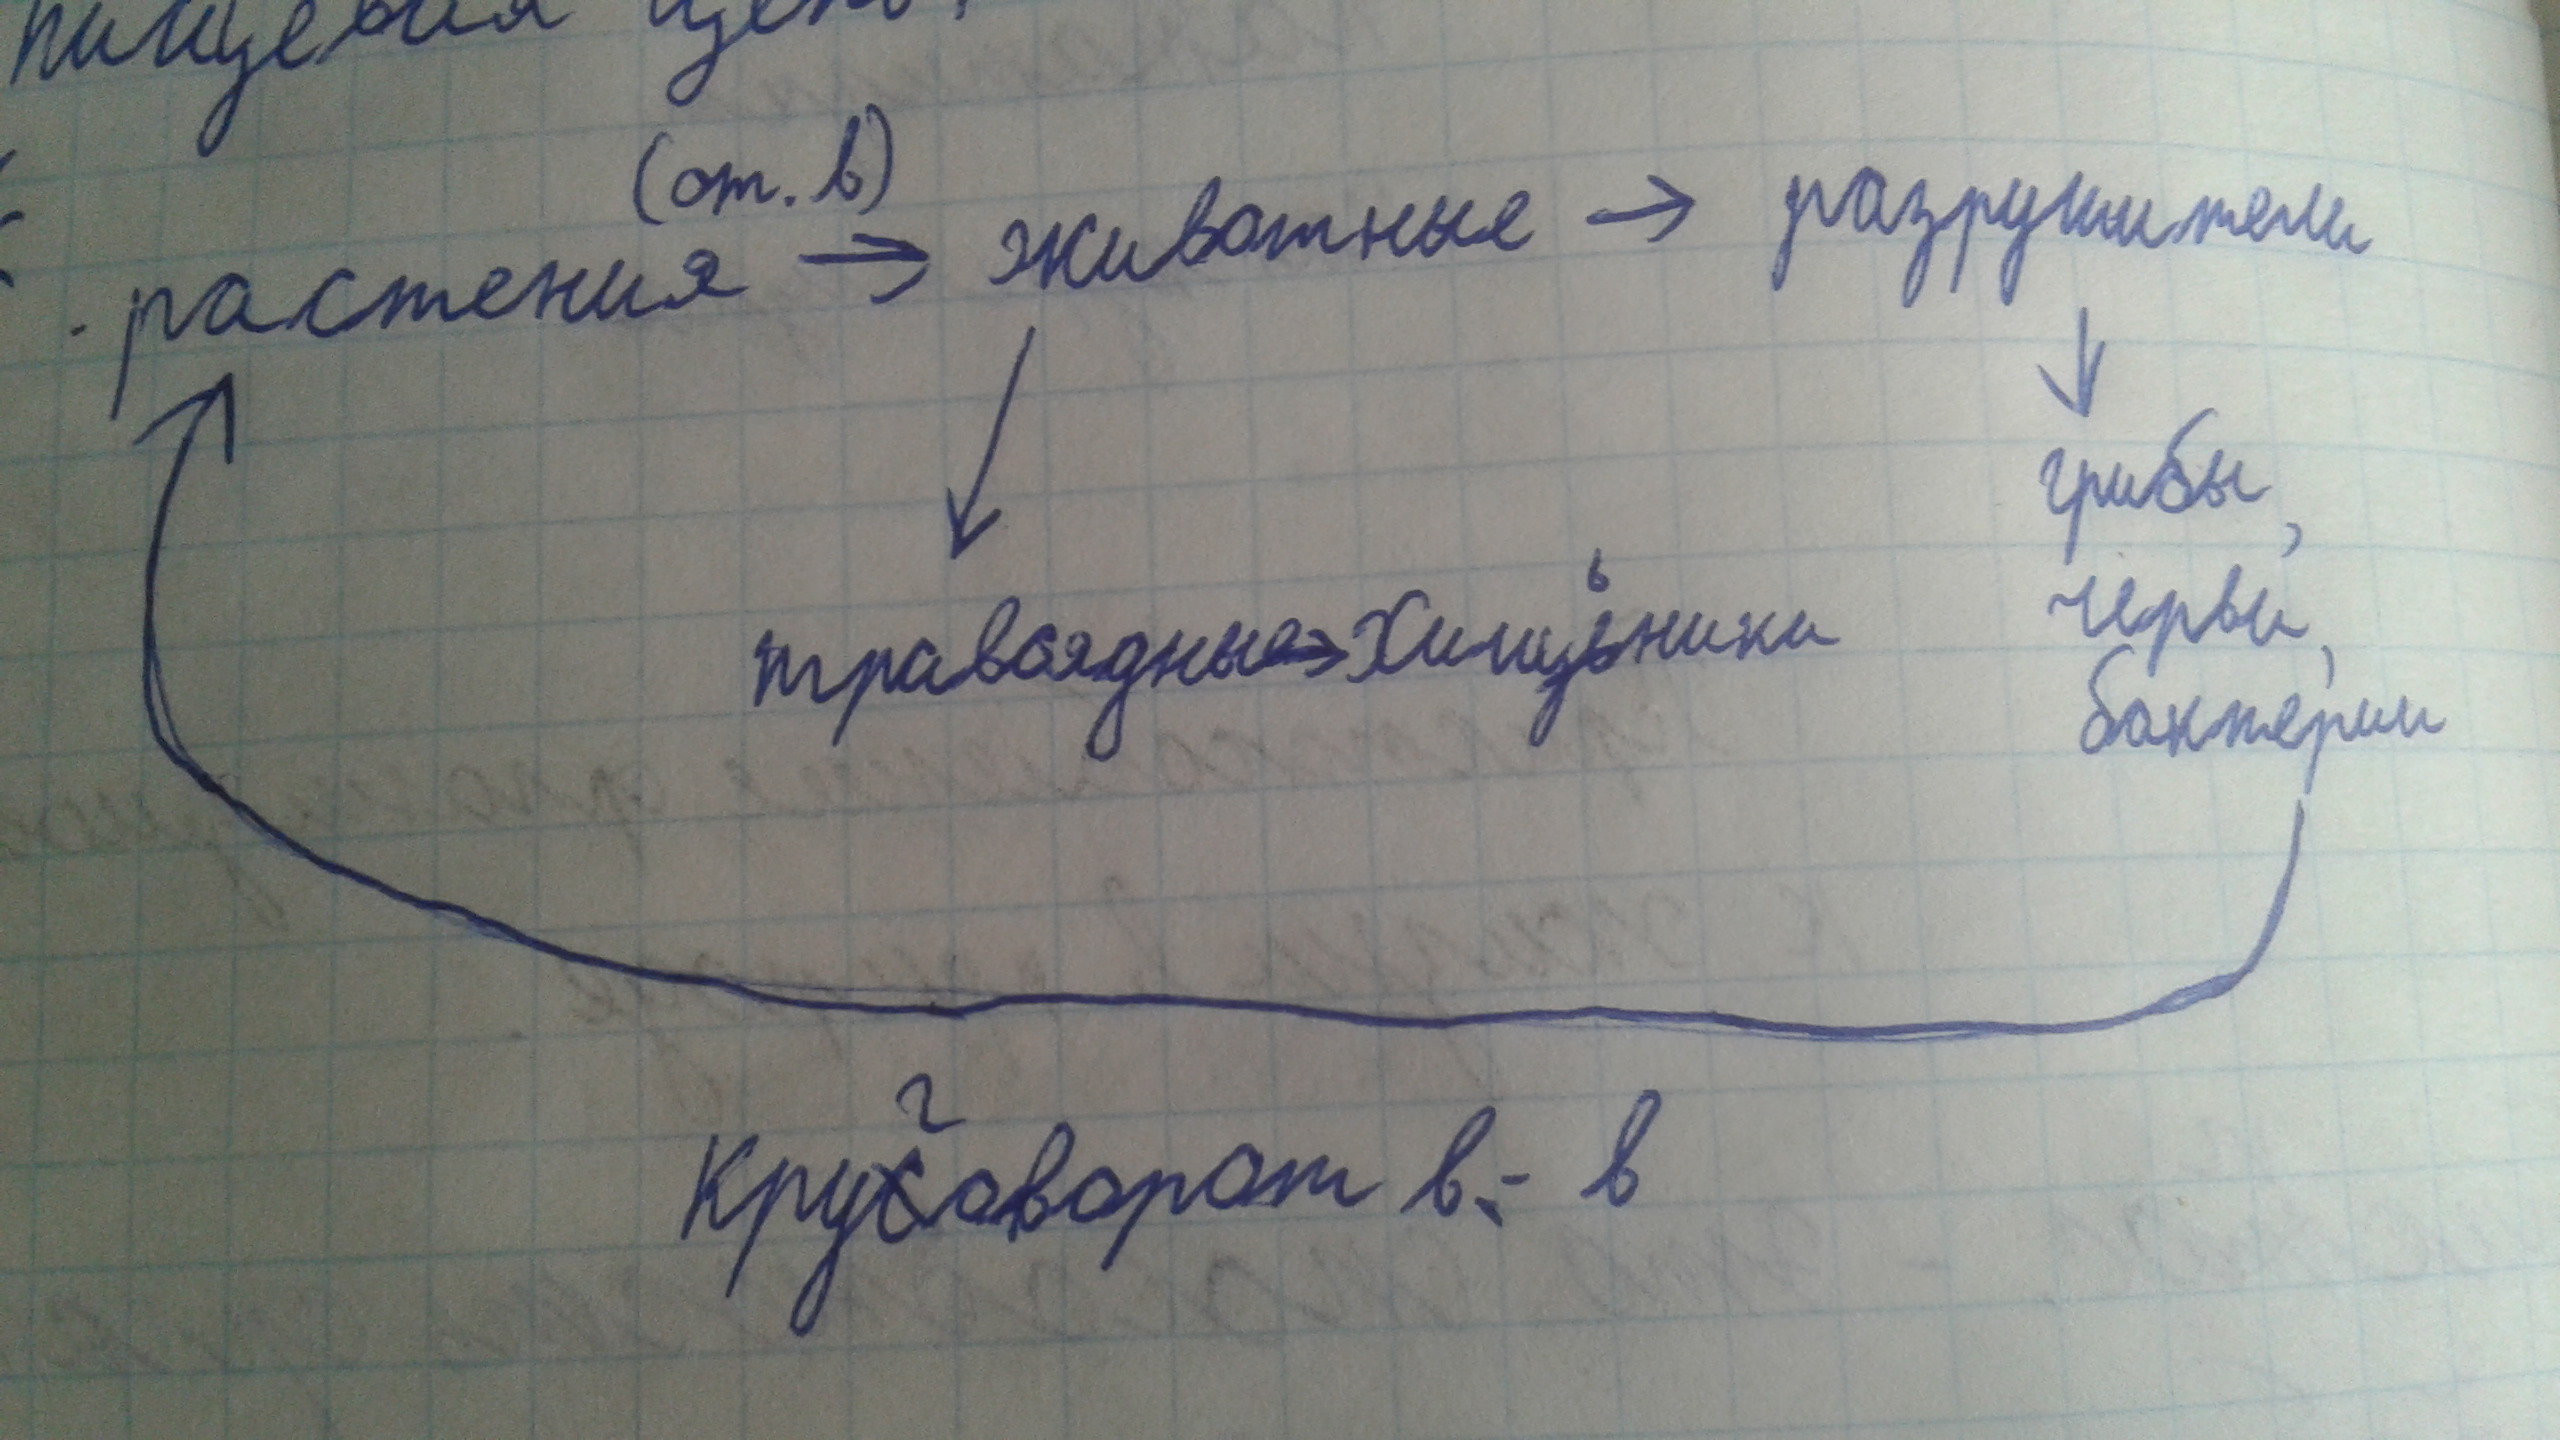 пищевая цепь.
(от. в)
растения → животные → разрушители
грибы,
травоядные → Хищьники
черви,
бактерии
Круговорот в- в